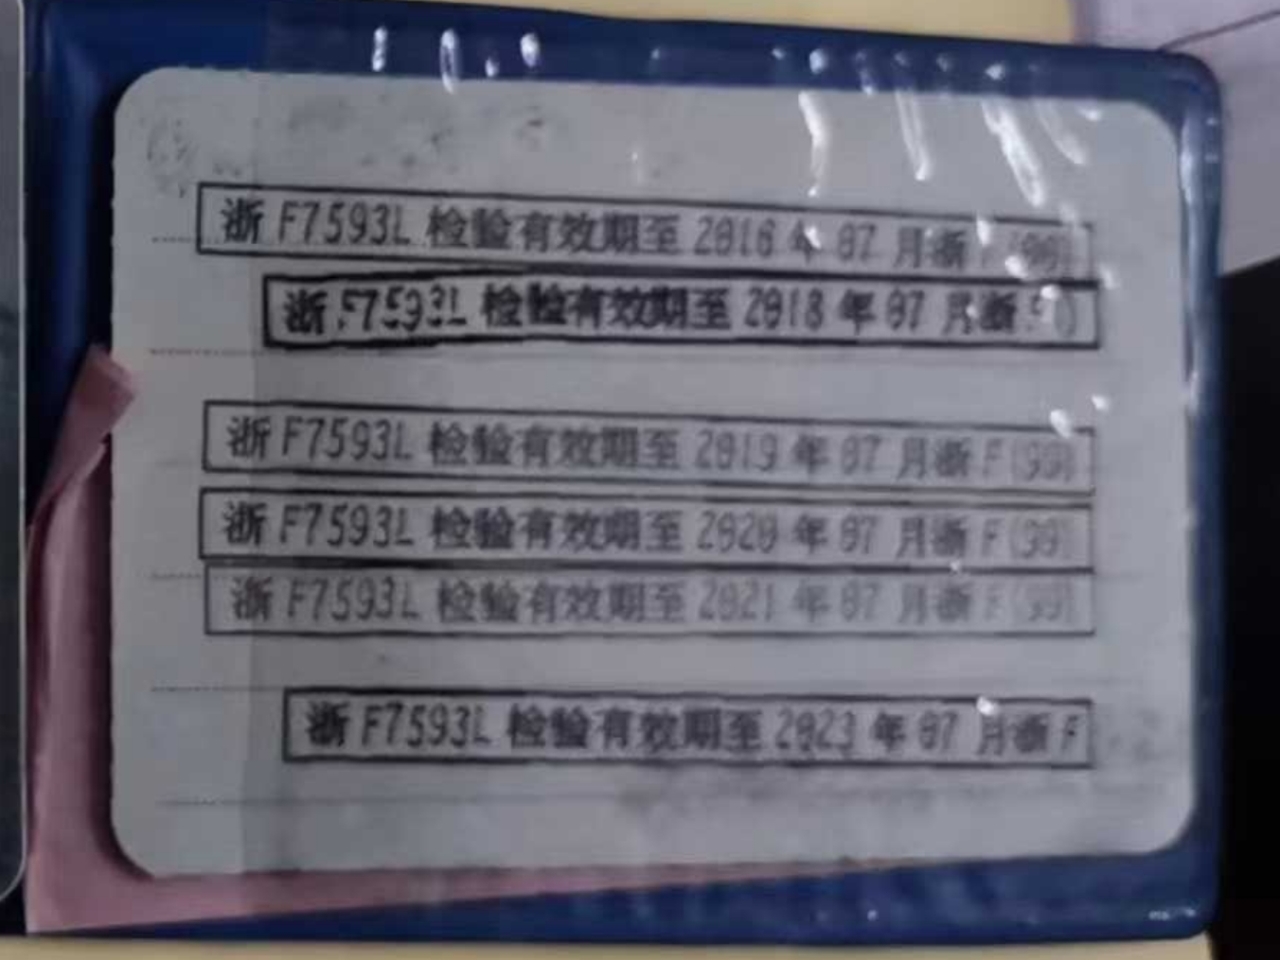 浙F7593L 检验有效期至2016年07月浙F(99)
浙F7593L 检验有效期至2018年07月浙F()
浙F7593L 检验有效期至2019年07月浙F(99)
浙F7593L 检验有效期至2020年07月浙F(99)
浙F7593L 检验有效期至2021年07月浙F(99)
浙F7593L 检验有效期至2023年07月浙F